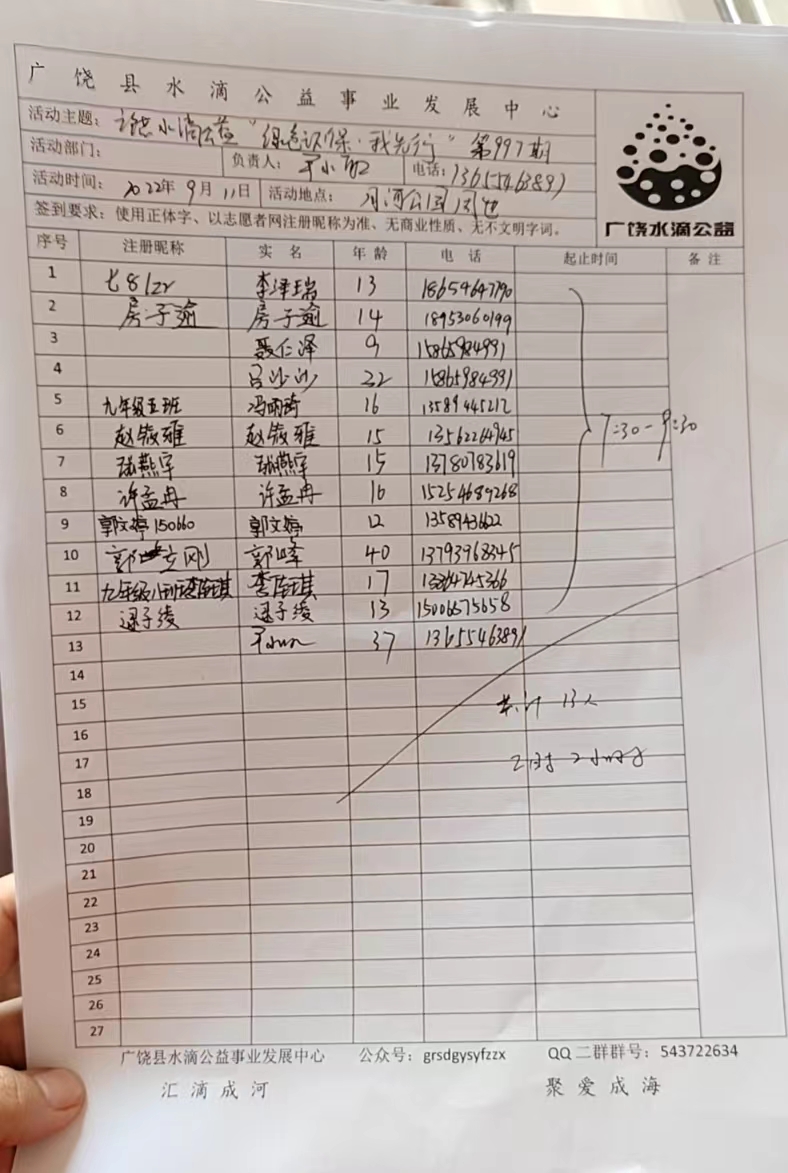 广饶县水滴公益事业发展中心
活动主题: 水滴公益“绿色环保·我先行”第997期
活动部门: 负责人: 于小 电话: 13655463891
活动时间: 2022年9月11日 活动地点: 月河公园周边
签到要求: 使用正体字、以志愿者网注册昵称为准、无商业性质、无不文明字词。
广饶水滴公益
序号 注册昵称 实名 年龄 电话 起止时间 备注
1 七8122 李泽瑞 13 18654647190
2 房子逾 房子逾 14 18953060199
3 聂仁泽 9 15865984991
4 吕沙沙 22 15865984991
5 九年级五班 冯雨琦 16 13589445212
6 赵筱雅 赵筱雅 15 13562264945
7 张燕宇 张燕宇 15 13780783619
8 许孟冉 许孟冉 16 15254689268
9 郭文婷150660 郭文婷 12 1358943622
10 郭 立刚 郭峰 40 13793968345
11 九年级八班 琪 17
12 梁子绫 梁子绫 13 15006575658
13 37 13655463891
7:30-9:30
14
15
共计 13人
16
17
2小时
18
19
20
21
22
23
24
25
26
27
广饶县水滴公益事业发展中心 公众号: grsdgysyfzzx QQ二群群号: 543722634
汇滴成河 聚爱成海